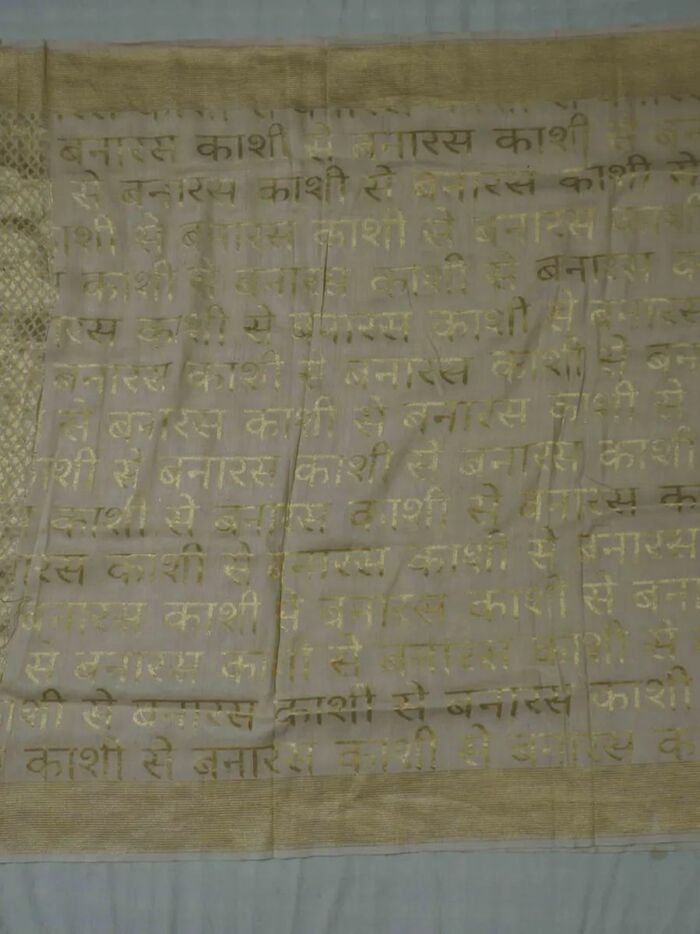 बनारस काशी से बनारस काशी से
से बनारस काशी से बनारस काशी से
काशी से बनारस काशी से बनारस काशी
काशी से बनारस काशी से बनारस
काशी से बनारस काशी से बनारस
बनारस काशी से बनारस काशी से
से बनारस काशी से बनारस काशी से
से बनारस काशी से बनारस काशी
काशी से बनारस काशी से बनारस
काशी से बनारस काशी से बनारस
बनारस काशी से बनारस काशी से
से बनारस काशी से बनारस काशी से
से बनारस काशी से बनारस काशी
काशी से बनारस काशी से बनारस